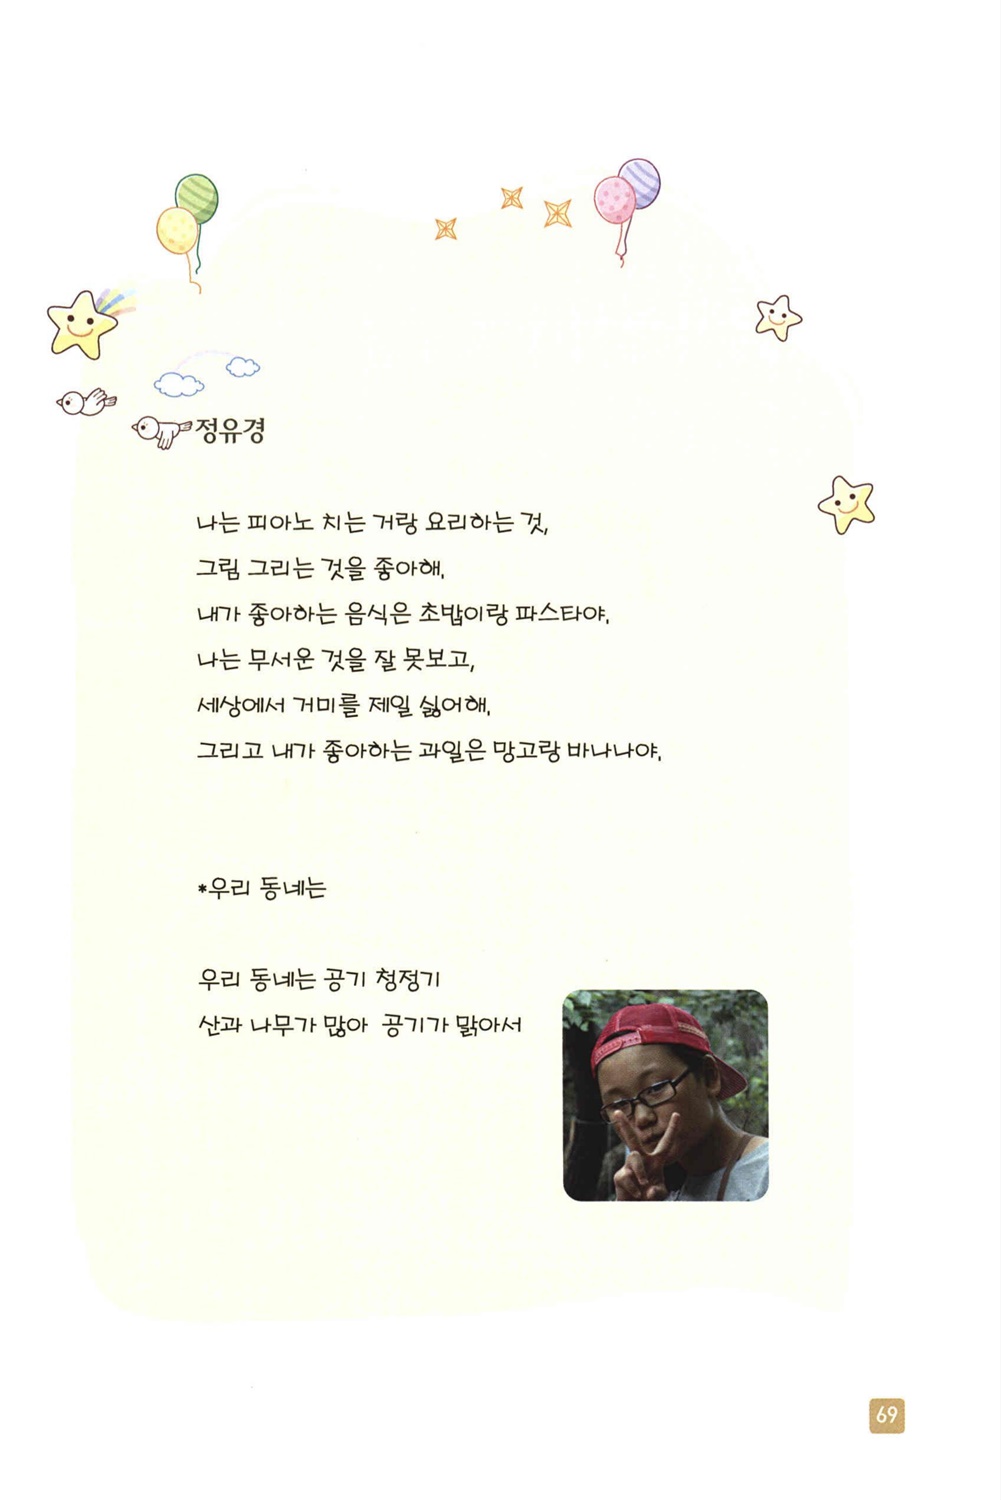 정유경
나는 피아노 치는 거랑 요리하는 것,
그림 그리는 것을 좋아해.
내가 좋아하는 음식은 초밥이랑 파스타야.
나는 무서운 것을 잘 못보고,
세상에서 거미를 제일 싫어해.
그리고 내가 좋아하는 과일은 망고랑 바나나야.
*우리 동네는
우리 동네는 공기 청정기
산과 나무가 많아 공기가 맑아서
69